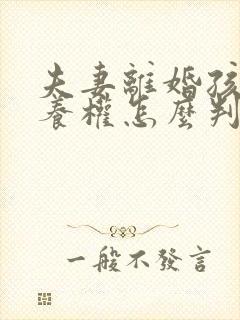 夫妻離婚孩
養權怎麼判
一般不發言